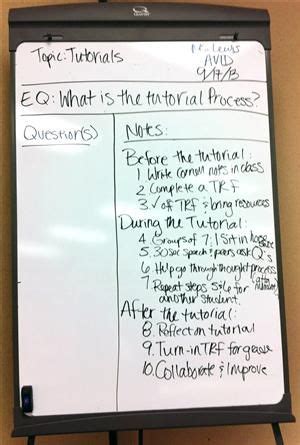 Topic: Tutorials
AVID
9/17/13
EQ: What is the tutorial Process?
Question(s)
Notes:
Before the tutorial:
1. Write cornell notes in class
2. Complete a TRF
3. ✓ off TRF & bring resources
During the Tutorial:
4. Groups of 7; 1 sit in
5. 30 sec speech & peers ask Q's
6. Help go through thought process
7. Repeat steps 5 & 6 for
another student.
After the tutorial:
8. Reflect on tutorial
9. Turn-in TRF for grade
10. Collaborate & Improve